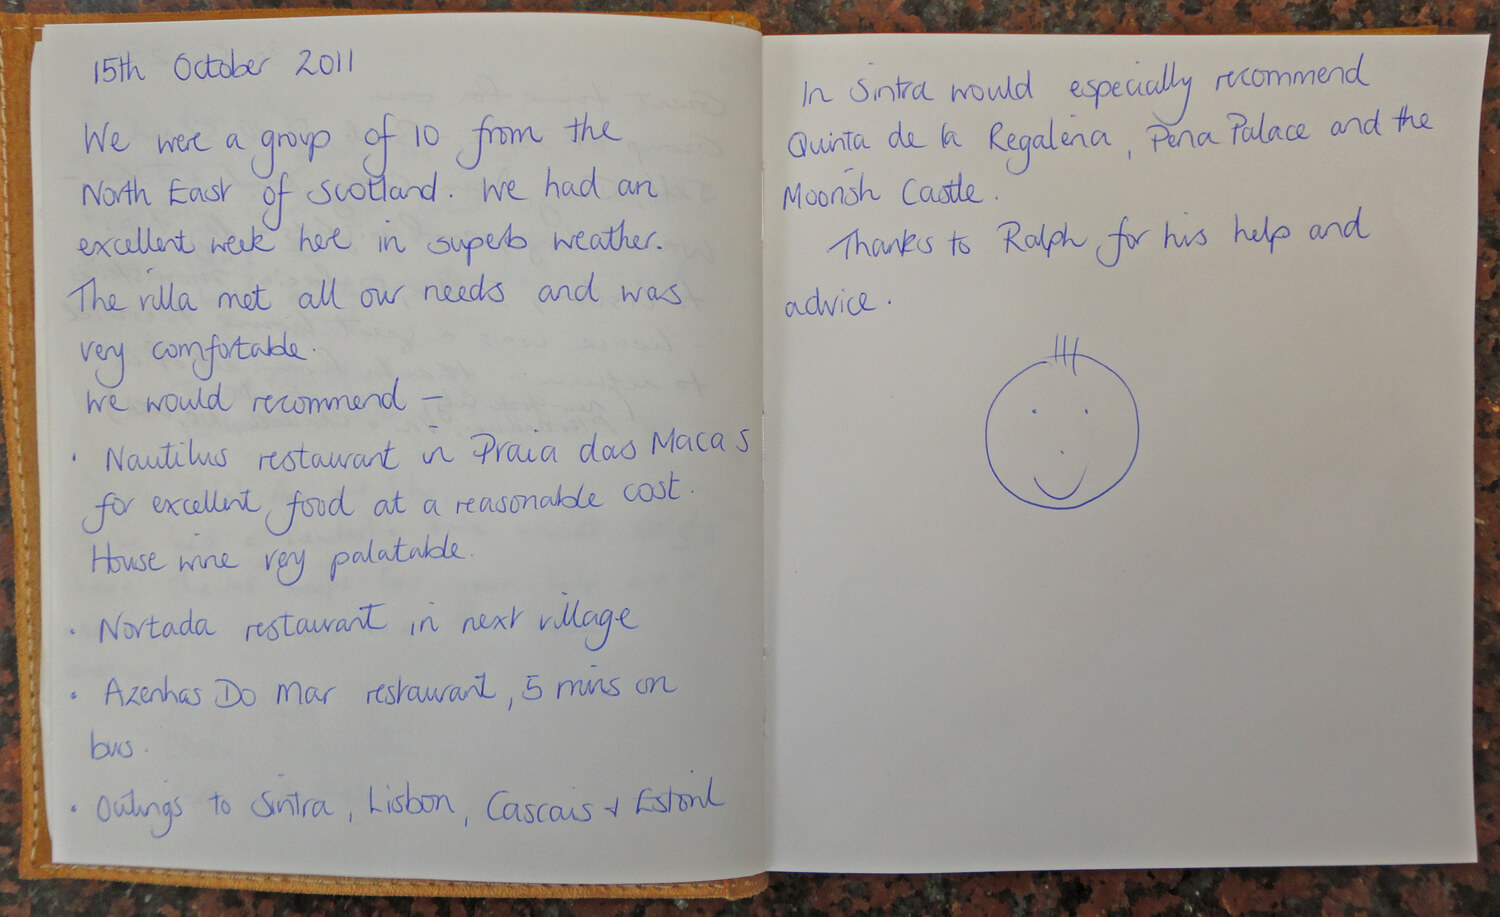 15th October 2011
We were a group of 10 from the
North East of Scotland. We had an
excellent week here in superb weather.
The villa met all our needs and was
very comfortable.
We would recommend –
• Nautilus restaurant in Praia das Macas
for excellent food at a reasonable cost.
House wine very palatable.
• Nortada restaurant in next village
• Azenhas Do Mar restaurant, 5 mins on
bus.
• Outings to Sintra, Lisbon, Cascais + Estoril
In Sintra would especially recommend
Quinta de la Regaleira, Pena Palace and the
Moorish Castle.
Thanks to Ralph for his help and
advice.